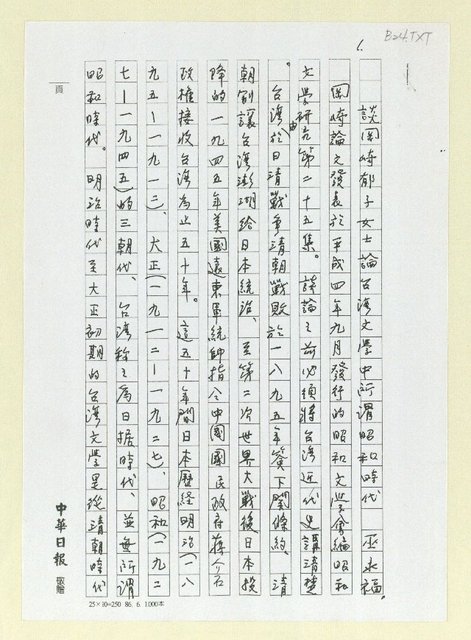 B24.TXT
1.
談岡崎郁子女士論台灣文學中所謂昭和時代 巫永福
岡崎論文發表於平成四年九月發行的昭和文學會編昭和
文學研究第二十五集。談論之前必須將台灣近代史講清楚
。台灣由於日清戰爭清朝戰敗於一八九五年簽下關條約、清
朝割讓台灣澎湖給日本統治、至第二次世界大戰後日本投
降的一九四五年美國遠東軍統帥指令中國國民政府蔣介石
政權接收台灣為止五十年。這五十年間日本歷經明治(一八
九五—一九一二、大正(一九一二—一九二七)、昭和(一九二
七—一九四五)的三朝代、台灣稱之為日據時代、並無所謂
昭和時代。明治時代至大正初期的台灣文學是從清朝時代
頁
中華日報 敬贈
25×10=250 86. 6. 1000本